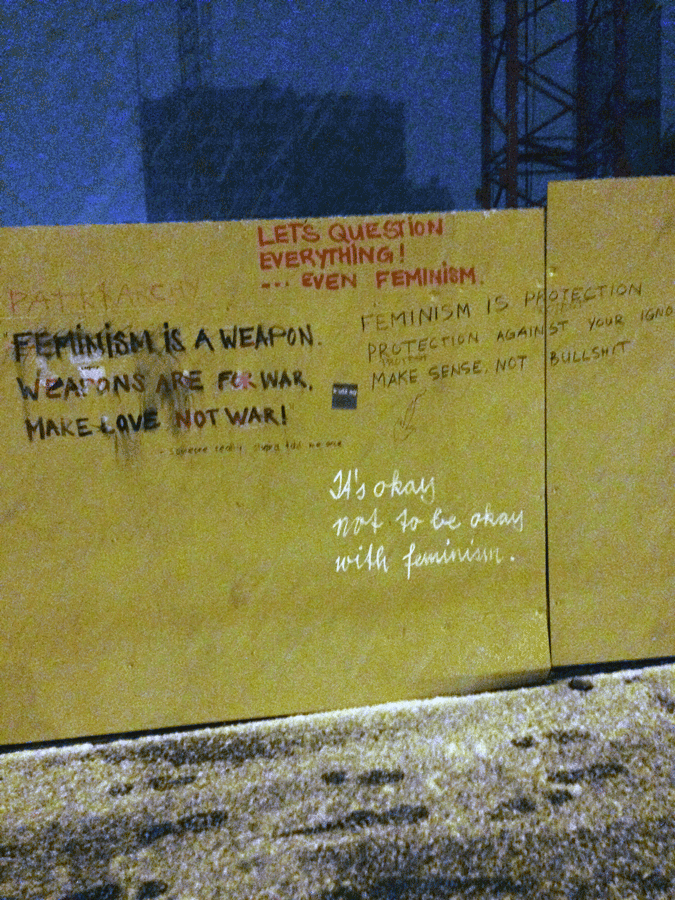 LET'S QUESTION
EVERYTHING!
... EVEN FEMINISM.
PATRIARCHY
"FEMINISM IS A WEAPON.
WEAPONS ARE FOR WAR.
MAKE LOVE NOT WAR!
- someone really stupid told me once
FEMINISM IS PROTECTION
PROTECTION AGAINST YOUR IGNO
MAKE SENSE, NOT BULLSHIT
It's okay
not to be okay
with feminism.